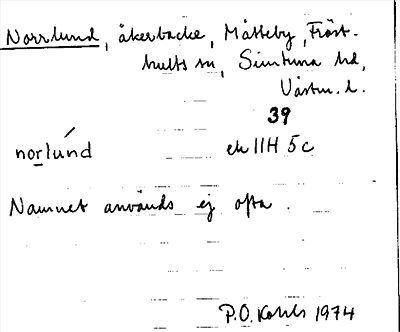 Norrlund, åkerbacke, Mått­eby, Fröst-
hults sn, Simtuna hd,
Västm. l.
39
norlúnd ek 11H 5c
Namnet används ej ofta.
P.O. 1974